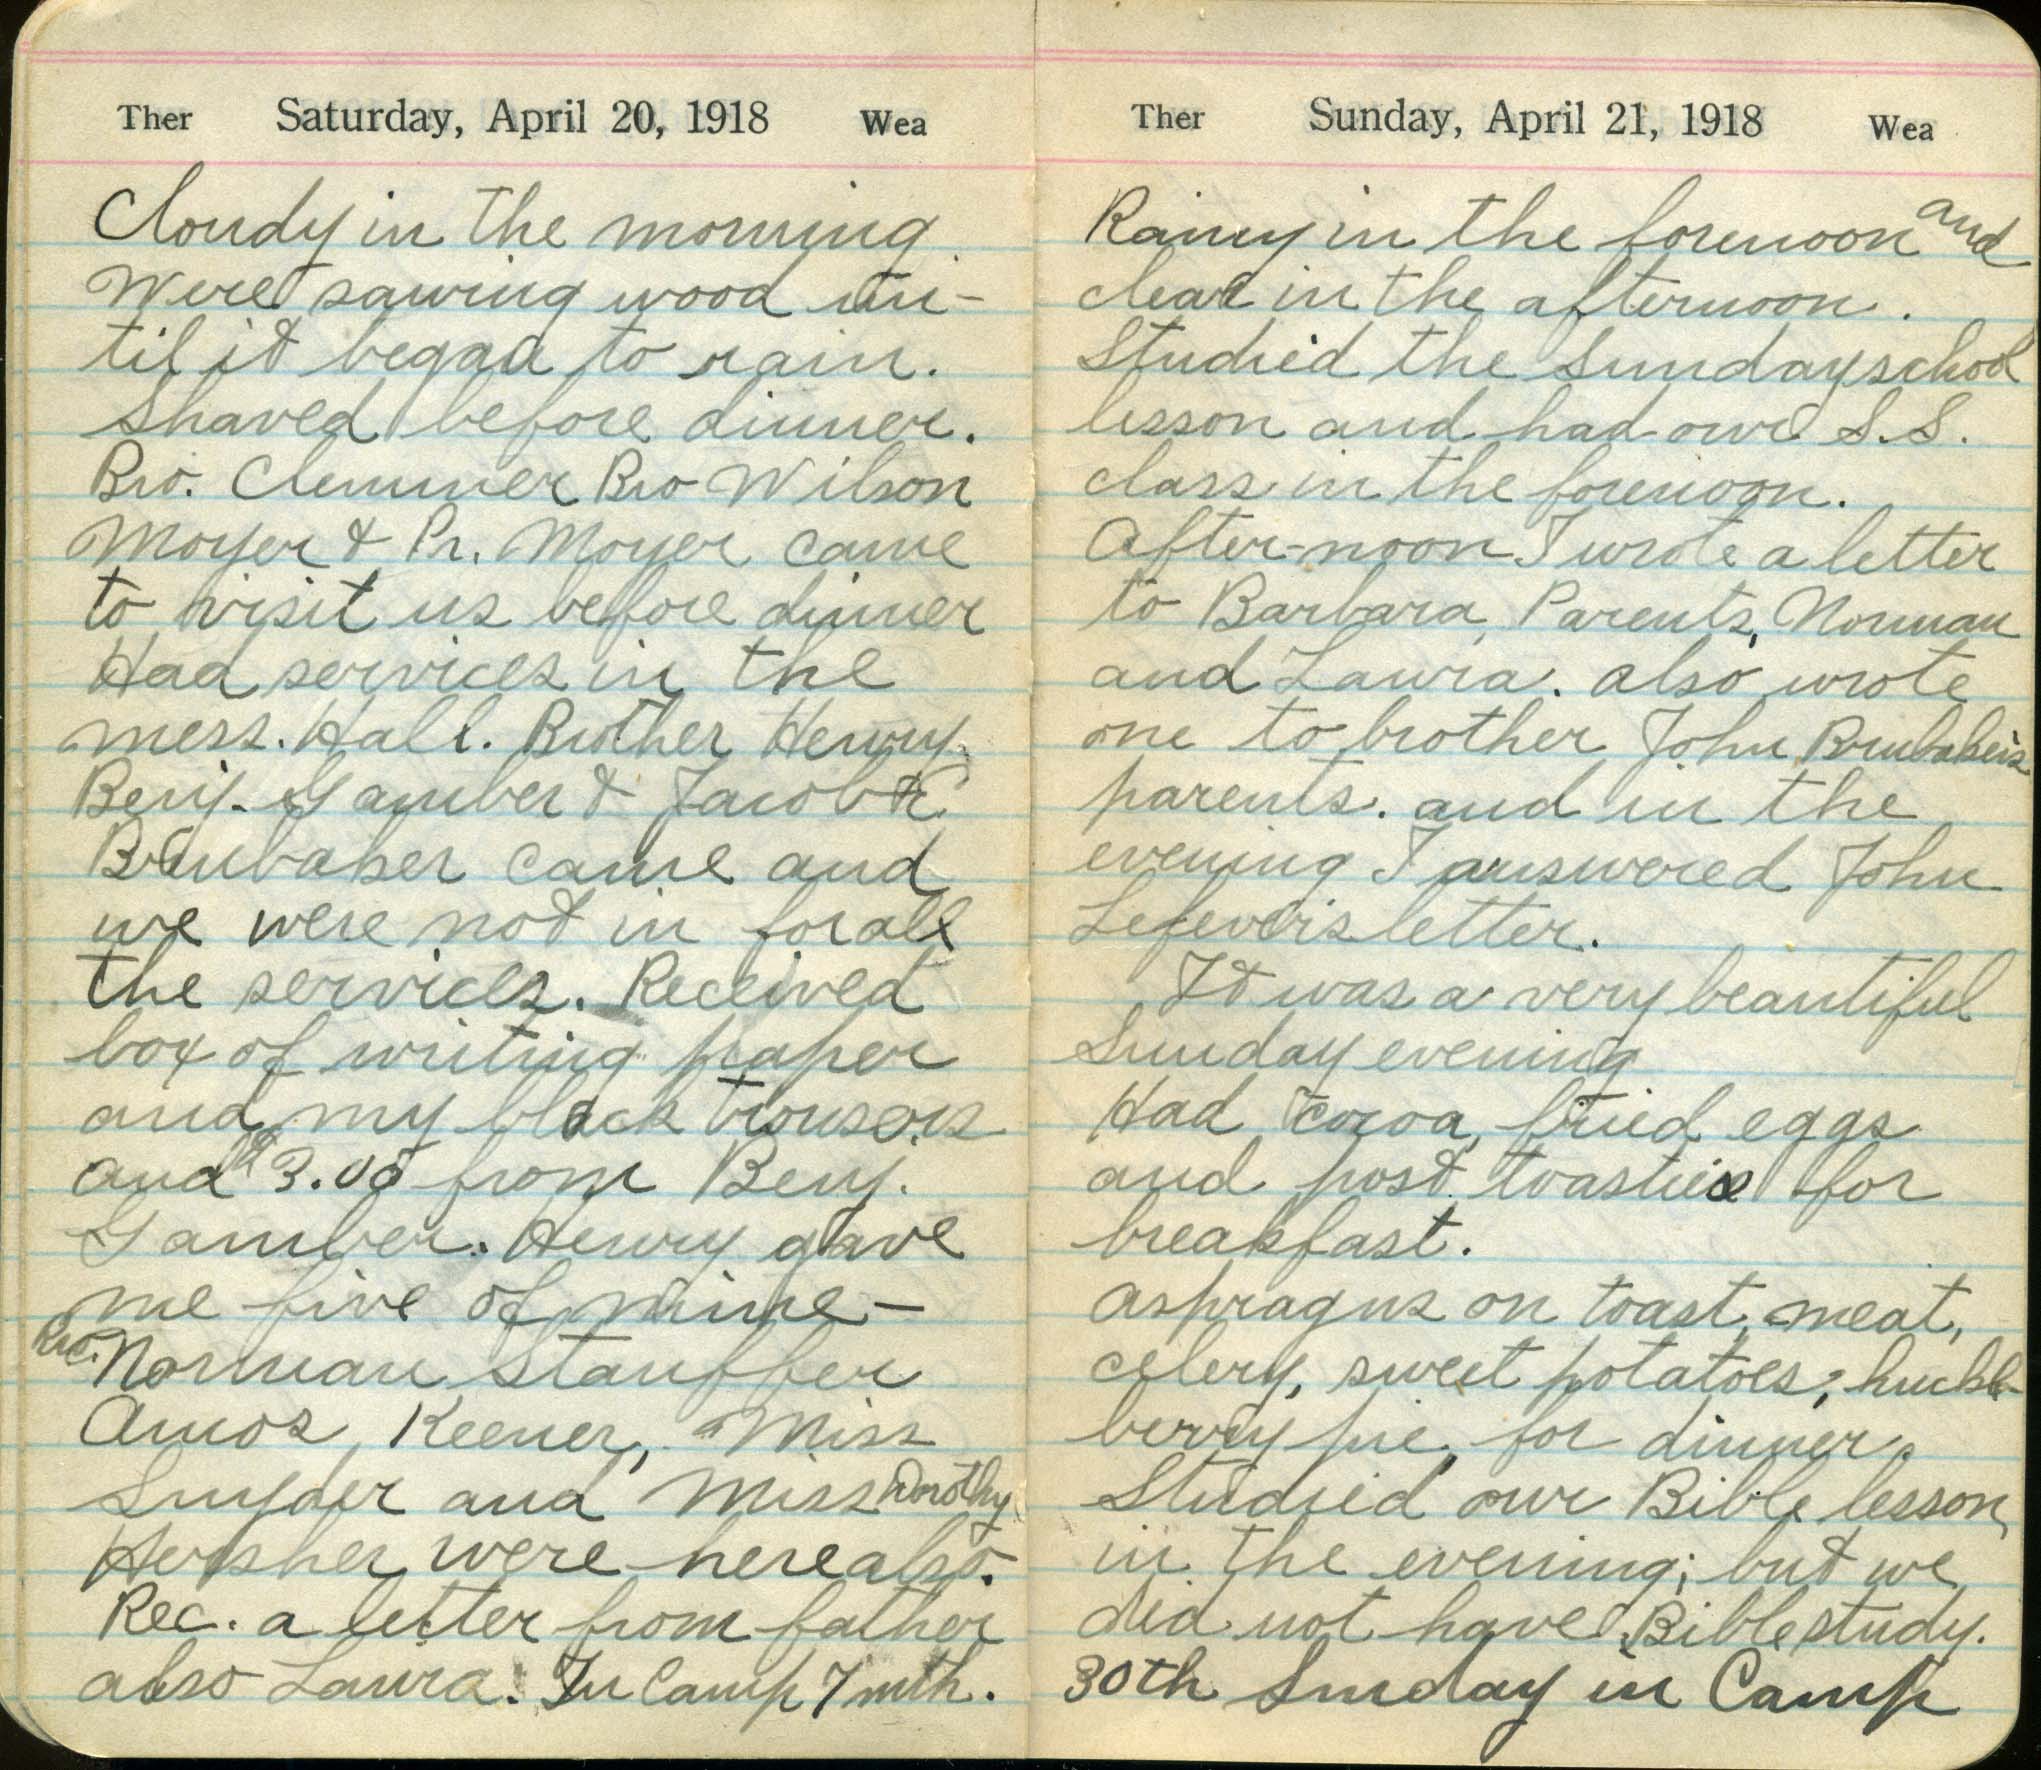 Ther Saturday, April 20, 1918 Wea
Cloudy in the morning
Were sawing wood un-
til it began to rain.
Shaved before dinner.
Bro. Clemmer Bro Wilson
Moyer & Pr. Moyer came
to visit us before dinner
Had services in the
mess. Hall. Brother Henry
Benj. Gamber & Jacob
Brubaker came and
we were not in for all
the services. Received
box of writing paper
and my black trousers
and $3.00 from Benj.
Gamber. Henry gave
me five of mine -
Bro. Norman Stauffer
Amos Keener, Miss
Snyder and Miss Dorothy
Hershey were here also.
Rec. a letter from father
also Laura. In Camp 7 mth.
Ther Sunday, April 21, 1918 Wea
Rainy in the forenoon and
clear in the afternoon.
Studied the Sunday school
lesson and had our S.S.
class in the forenoon.
After-noon I wrote a letter
to Barbara, Parents, Norman
and Laura. also wrote
one to brother John Brubaker's
parents. and in the
evening I answered John
Lefever's letter.
It was a very beautiful
Sunday evening
Had cocoa, fried eggs
and post toasties for
breakfast.
aspragus on toast, meat,
celery, sweet potatoes, huckle-
berry pie, for dinner.
Studied our Bible lesson
in the evening; but we
did not have Bible study.
30th Sunday in Camp